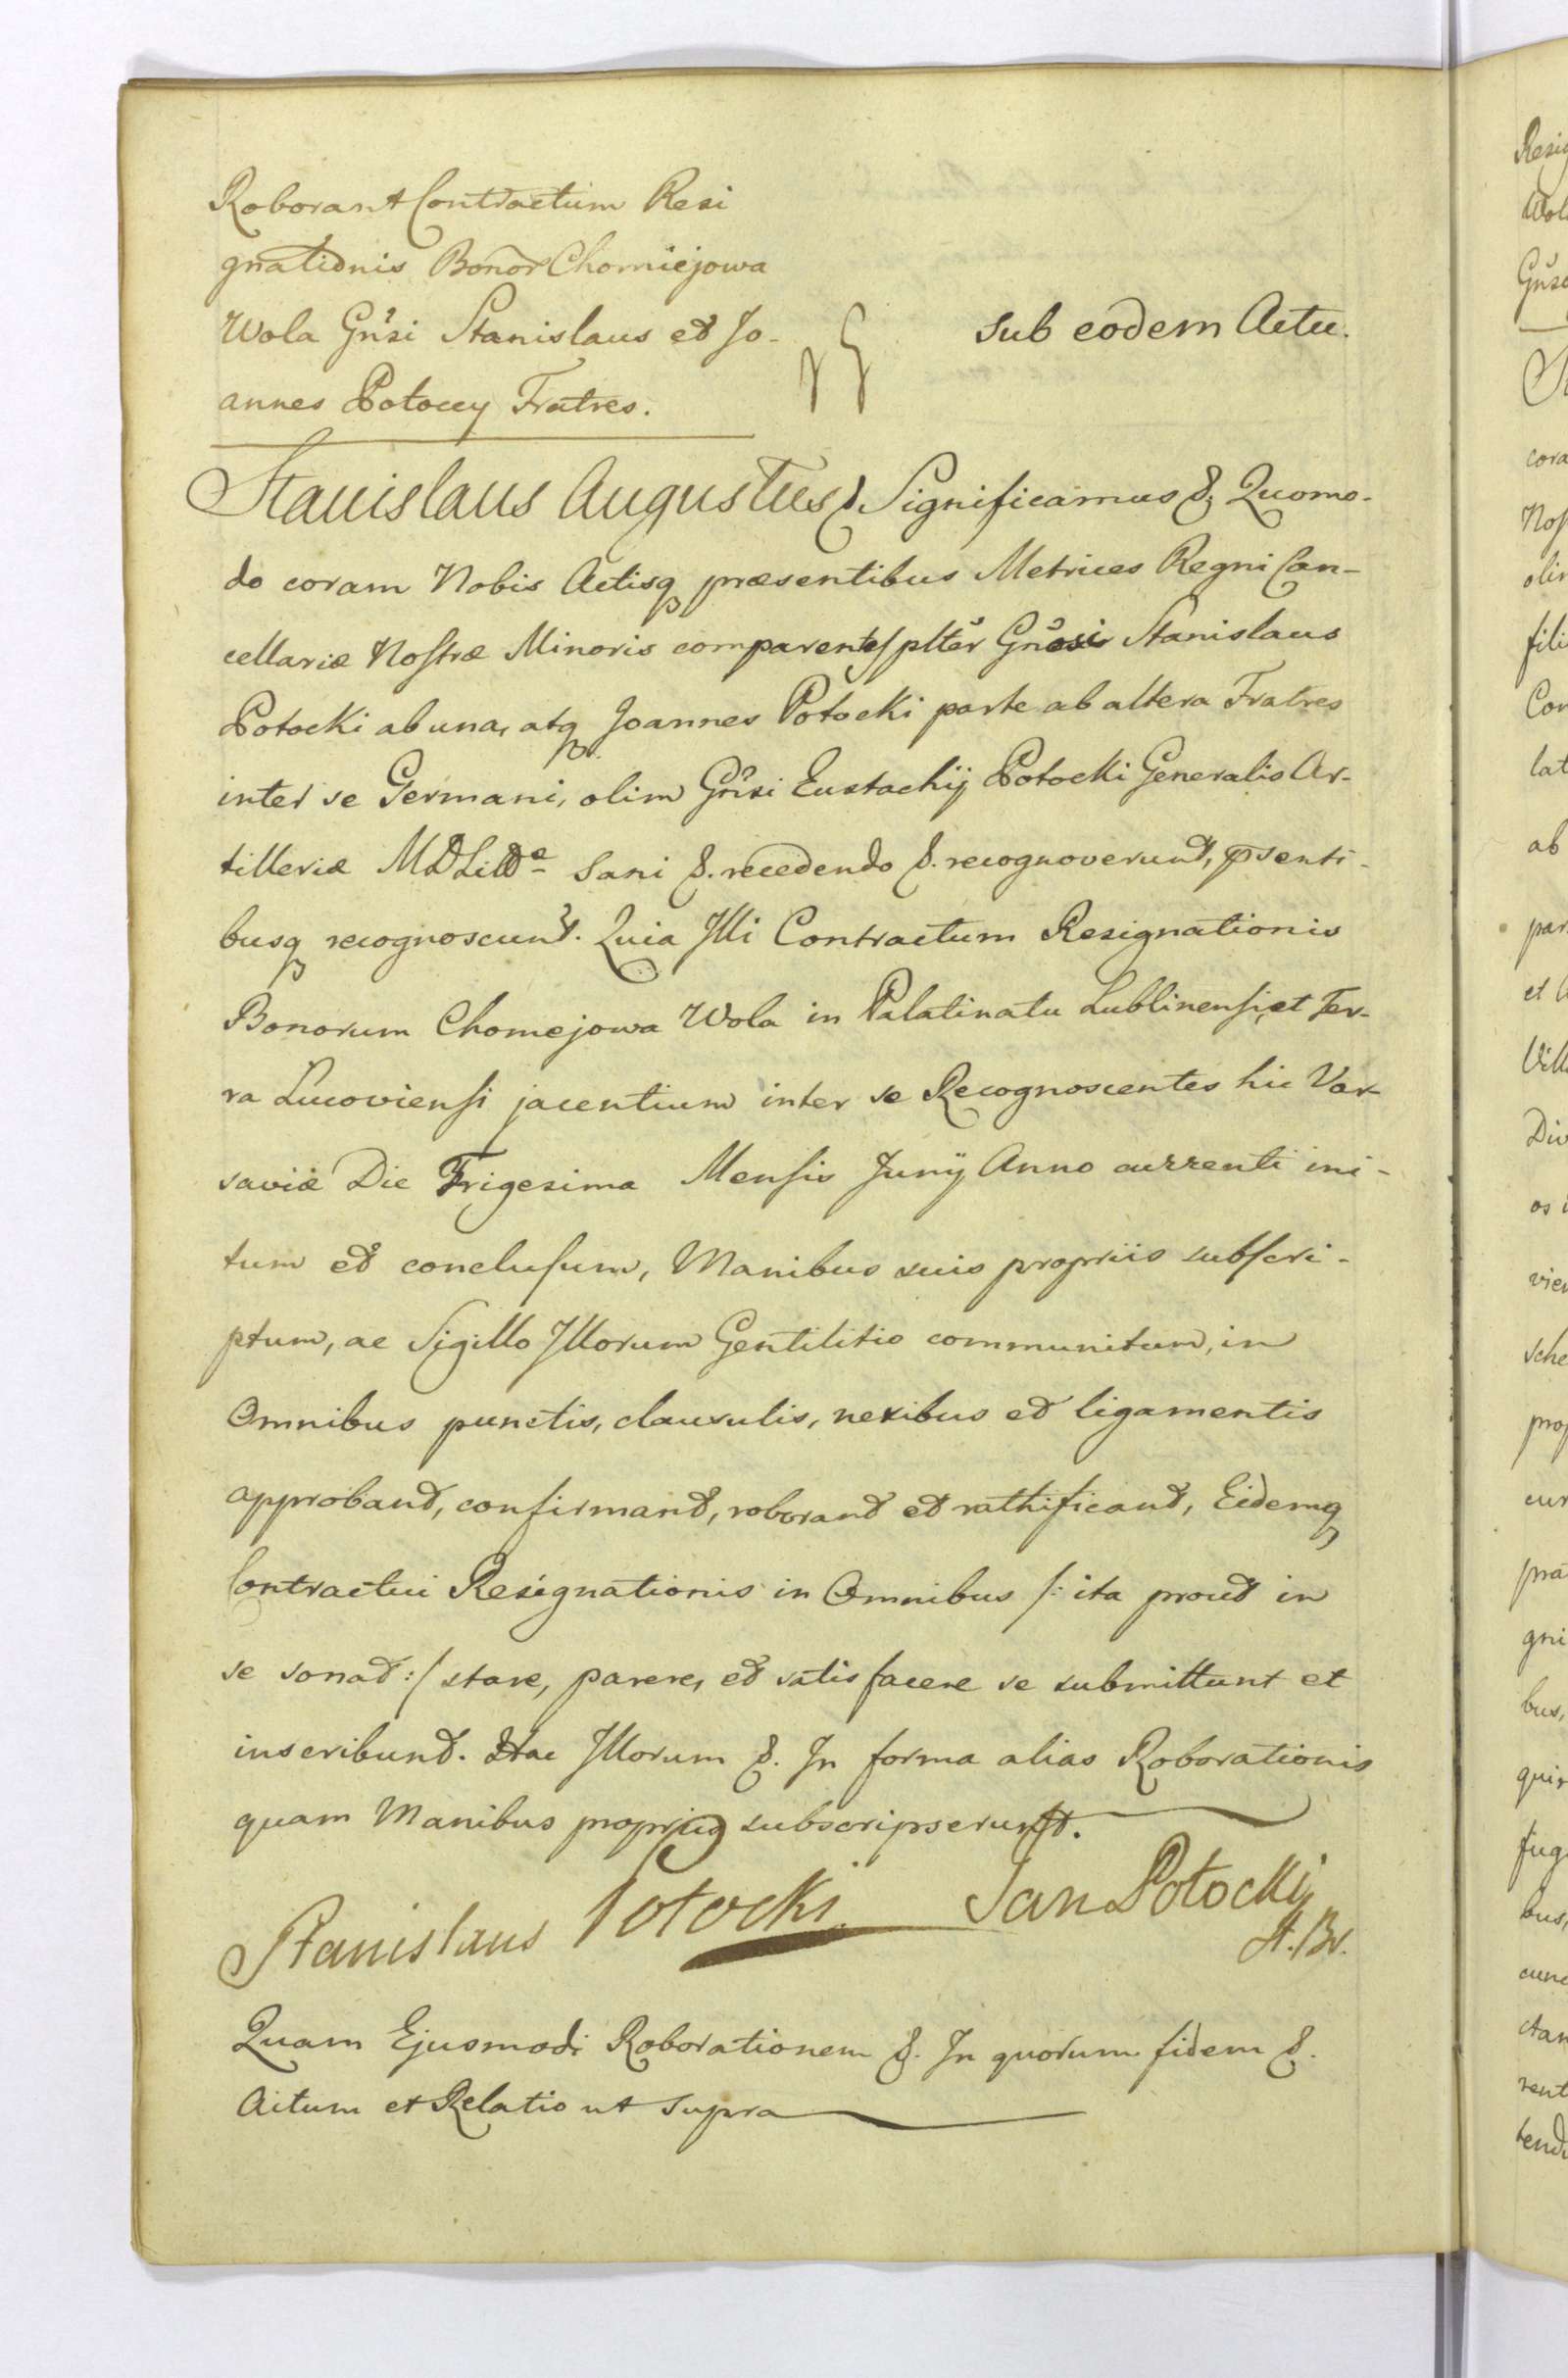 Roborant Contractum Resi
gnationis Bonor Chomiejowa
Wola Gnsi Stanislaus et Jo-
annes Potoccy Fratres.
Sub eodem Actu.
Stanislaus Augustus &. Significamus &. Quomo-
do coram Nobis Actisq præsentibus Metrices Regni Can-
cellariæ Nostræ Minoris comparentes plter Gnosi Stanislaus
Potocki ab una, atq Joannes Potocki parte ab altera Fratres
inter se Germani, olim Gnsi Eustachij Potocki Generalis Ar-
tilleriæ MDLittæ Sani &. recedendo &. recognoverunt, psenti-
busq recognoscunt. Quia Illi Contractum Resignationis
Bonorum Chomejowa Wola in Palatinatu Lublinensi, et Ter-
ra Lucoviensi jacentium inter se Recognoscentes hic Var-
saviæ Die Trigesima Mensis Junij Anno currenti ini-
tum et conclusum, Manibus suis propriis subscri-
ptum, ac Sigillo Illorum Gentilitio communitum, in
Omnibus punctis, clausulis, nexibus et ligamentis
approbant, confirmant, roborant et rathificant, Eidemq
Contractui Resignationis in Omnibus /: ita prout in
se sonat :/ stare, parere, et satisfacere se submittunt et
inscribunt. Hac Illorum &. In forma alias Roborationis
quam Manibus propriis subscripserunt.
Stanislaus Potocki. Jan Potocki
Quam Ejusmodi Roborationem &. In quorum fidem &.
Actum et Relatio ut supra
Resig
Wol
cora
Nos
olim
fili
Con
lat
ab
par
et
Vill
Div
os
vien
sche
prop
cur
præ
gni
bus,
quir
fug
bus,
cunc
ctan
rent
tend